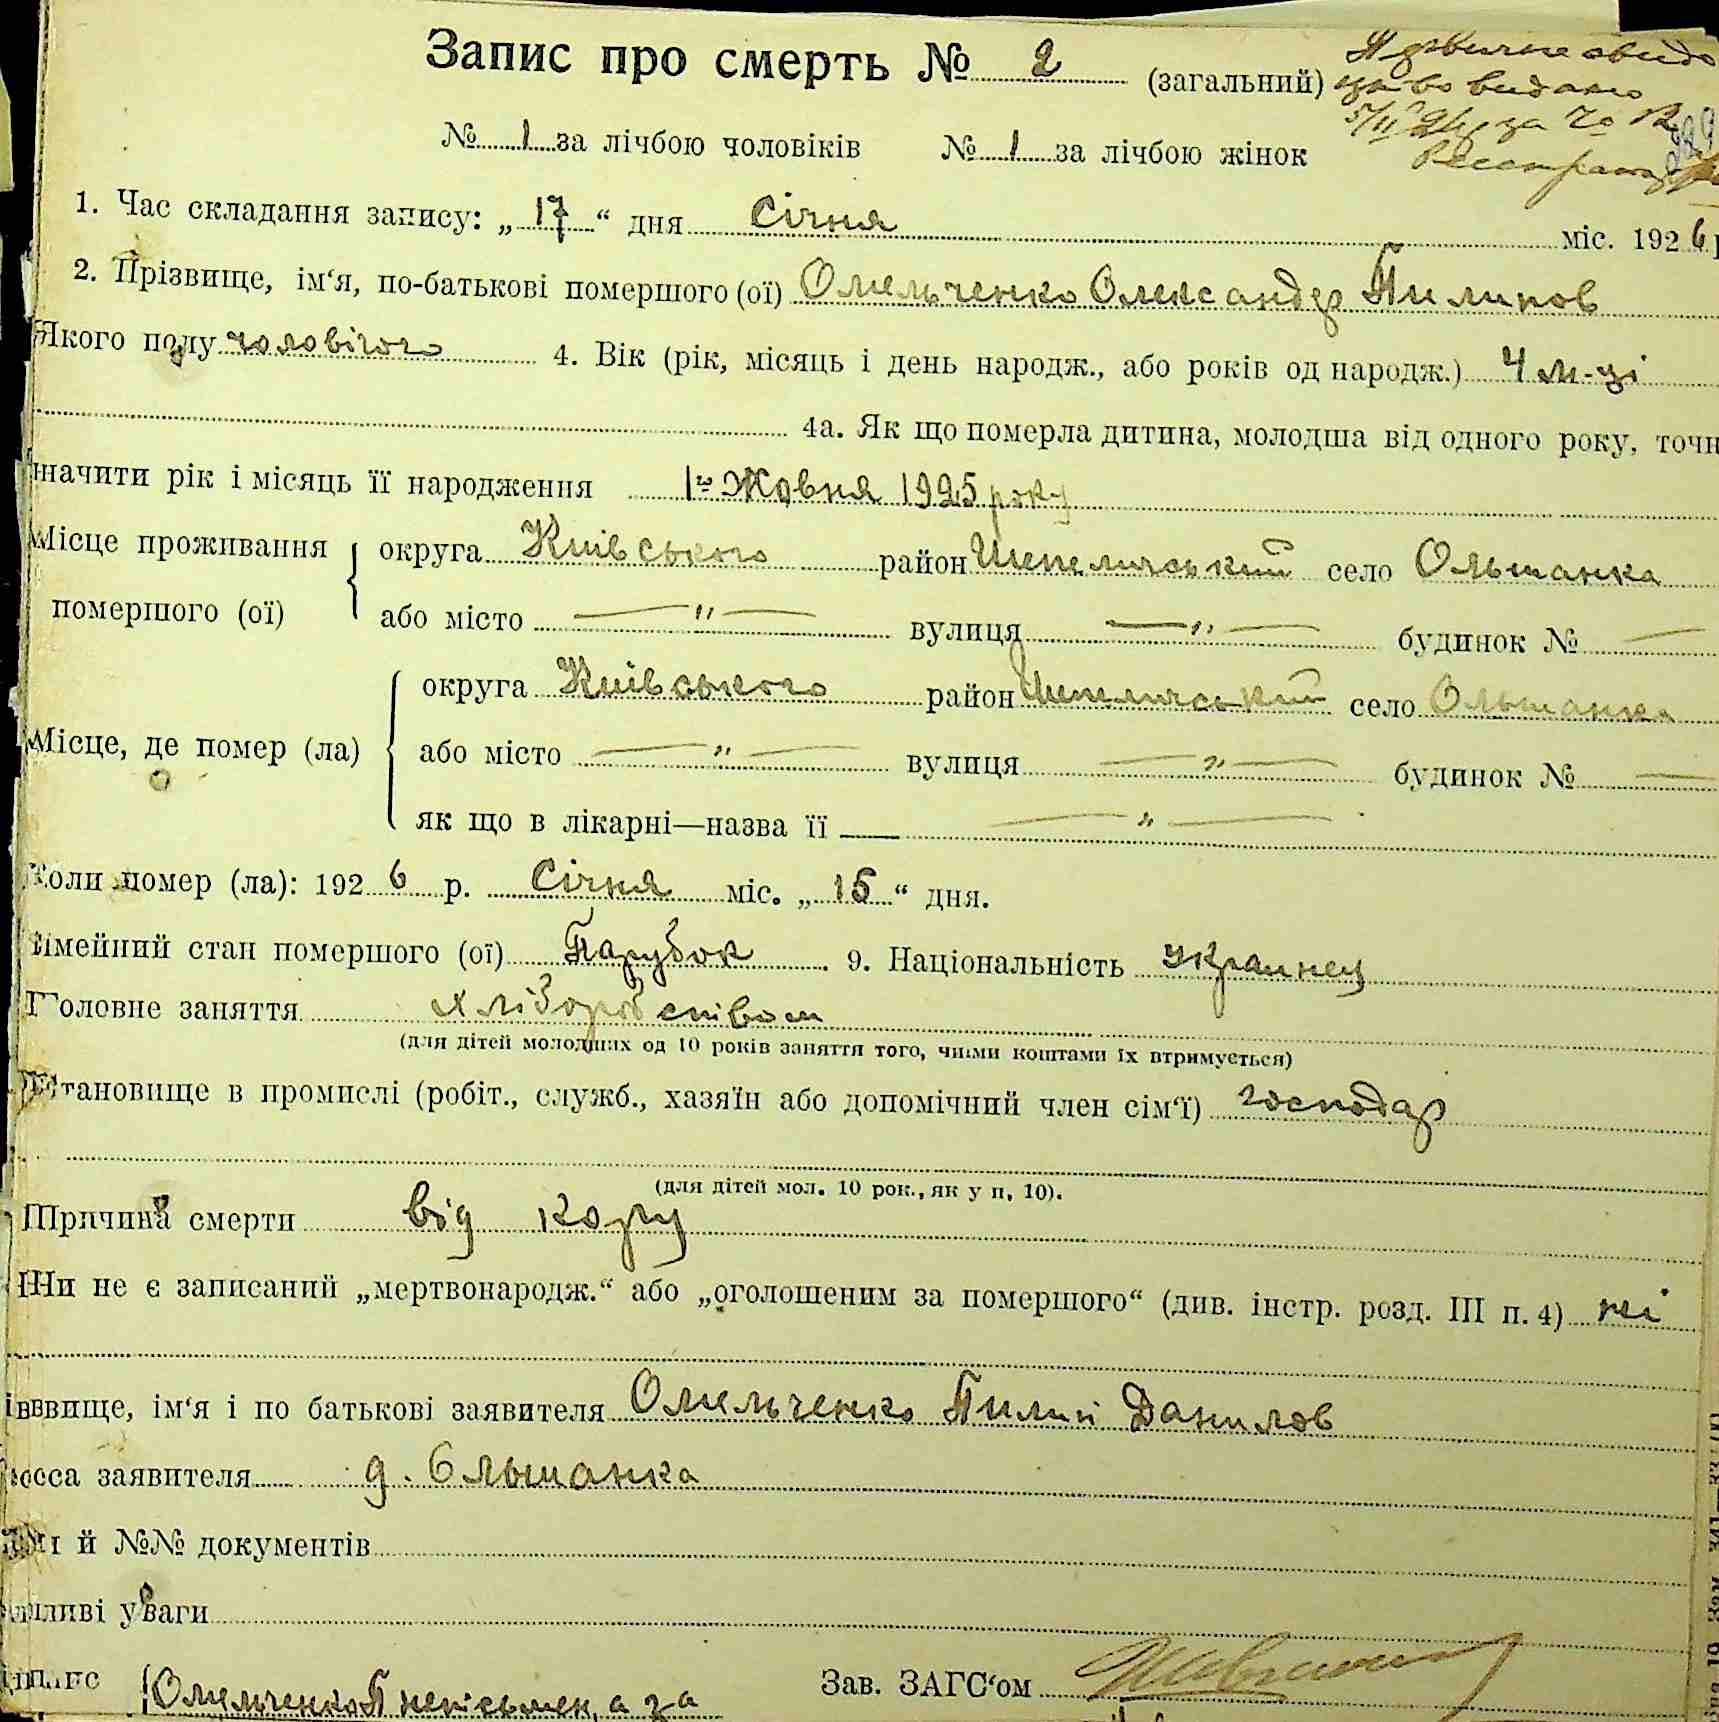 Запис про смерть № 2 (загальний)
видано
№ 1 за лічбою чоловіків № 1 за лічбою жінок
1. Час складання запису: „17“ дня Січня міс. 1926
2. Прізвище, ім‘я, по-батькові помершого (ої) Омельченко Олександр Пилипов
Якого полу чоловічого 4. Вік (рік, місяць і день народж., або років од народж.) 4 м-ці
4а. Як що померла дитина, молодша від одного року, точн
значити рік і місяць її народження 1го Жовня 1925 року
Місце проживання помершого (ої)
округа Київського район Шепеличський село Ольшанка
або місто —"— вулиця —"— будинок № —
Місце, де помер (ла)
округа Київського район Шепеличський село Ольшанка
або місто —"— вулиця —"— будинок № —
як що в лікарні—назва її —"—
Коли помер (ла): 1926 р. Січня міс. „15“ дня.
імейний стан помершого (ої) Парубок 9. Національність Украинец
Головне заняття хліборобспівом
(для дітей молодших од 10 років заняття того, чиїми коштами їх втримується)
становище в промислі (робіт., служб., хазяїн або допомічний член сім‘ї) господар
(для дітей мол. 10 рок., як у п. 10).
Причина смерти від кору
Чи не є записаний „мертвонародж.“ або „оголошеним за помершого“ (див. інстр. розд. III п. 4) ні
вище, ім‘я і по батькові заявителя Омельченко Пилип Данилов
са заявителя д. Ольшанка
й №№ документів
ливі уваги
Омельченко П неписьмен, а за
Зав. ЗАГС‘ом